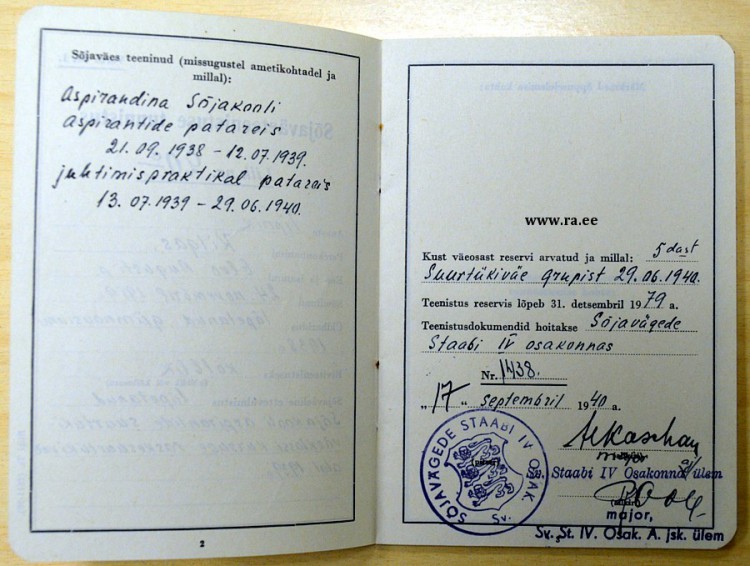 Sõjaväes teeninud (missugustel ametikohtadel ja
millal):
Aspirandina Sõjakooli
aspirantide patareis
21.09.1938 – 12.07.1939.
juhtimispraktikal patareis
13.07.1939 – 29.06.1940.
2
www.ra.ee
Kust väeosast reservi arvatud ja millal: 5dast
Suurtükiväe grupist 29.06.1940.
Teenistus reservis lõpeb 31. detsembril 1979 a.
Teenistusdokumendid hoitakse Sõjavägede
Staabi IV osakonnas
Nr. 1438.
"17" septembril 1940 a.
SÕJAVÄGEDE STAABI IV OSAK.
Sv.
major
Sv. Staabi IV Osakonna a/ülem
major,
Sv. St. IV. Osak. A. jsk. ülem